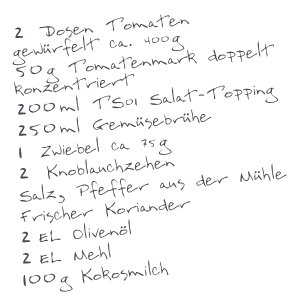 2 Dosen Tomaten
gewürfelt ca. 400g
50g Tomatenmark doppelt
konzentriert
200ml TSOI Salat-Topping
250ml Gemüsebrühe
1 Zwiebel ca 75g
2 Knoblauchzehen
Salz, Pfeffer aus der Mühle
Frischer Koriander
2 EL Olivenöl
2 EL Mehl
100g Kokosmilch